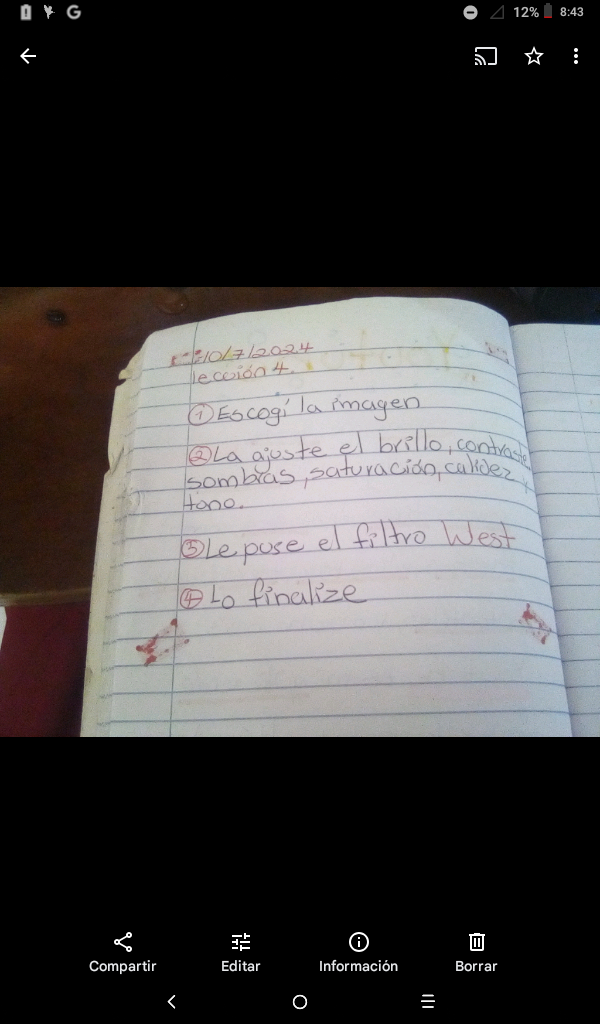 12% 8:43
10/7/2024
lección 4.
① Escogí la imagen
② La ajuste el brillo, contraste
sombras, saturación, calidez y
tono.
③ Le puse el filtro West
④ Lo finalize
Compartir Editar Información Borrar